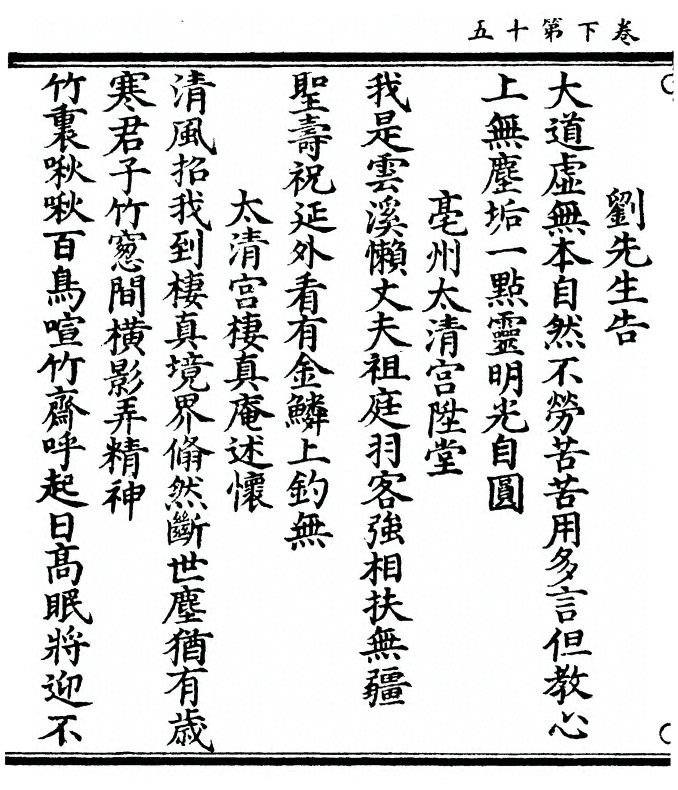 卷下第十五
劉先生告
大道虛無本自然不勞苦苦用多言但教心
上無塵垢一點靈明光自圓
亳州太清宮陞堂
我是雲溪懶丈夫祖庭羽客強相扶無疆
聖壽祝延外看有金鱗上釣無
太清宮棲真庵述懷
清風招我到棲真境界翛然斷世塵猶有歲
寒君子竹窻間橫影弄精神
竹裏啾啾百鳥喧竹齋呼起日高眠將迎不